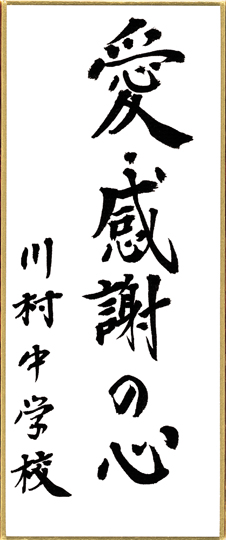 愛・感謝の心
川村中学校